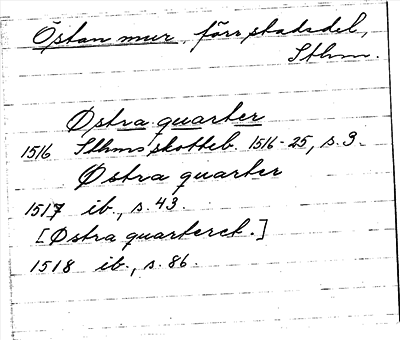 Östan mur, förr stadsdel,
Sthm.
Østra quarter
1516 Sthms skotteb. 1516-25, s. 3.
Østra quarter
1517 ib., s. 43.
[Østra quarteret.]
1518 ib., s. 86.